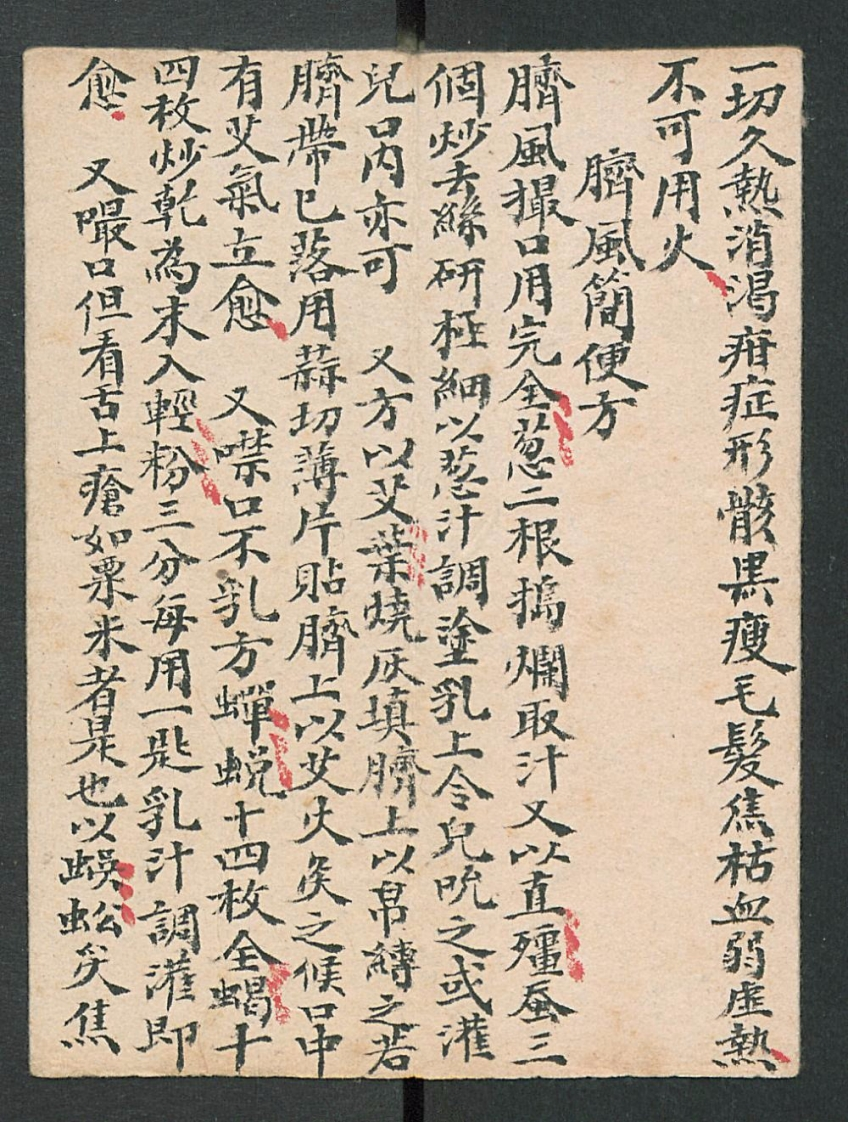 一切久熱消渴疳症形骸黒瘦毛髮焦枯血弱虛熱
不可用火
臍風簡便方
臍風撮口用完全葱二根搗爛取汁又以直殭蚕三
個炒去絲研極細以葱汁調塗乳上令兒吮之或灌
兒口內亦可　又方以艾葉燒灰填臍上以帛縛之若
臍帶已落用蒜切薄片貼臍上以艾火灸之候口中
有艾氣立愈　又噤口不乳方蟬蛻十四枚全蝎十
四枚炒乾為末入輕粉三分每用一匙乳汁調灌即
愈　又嘬口但看舌上瘡如粟米者是也以蜈蚣炙焦